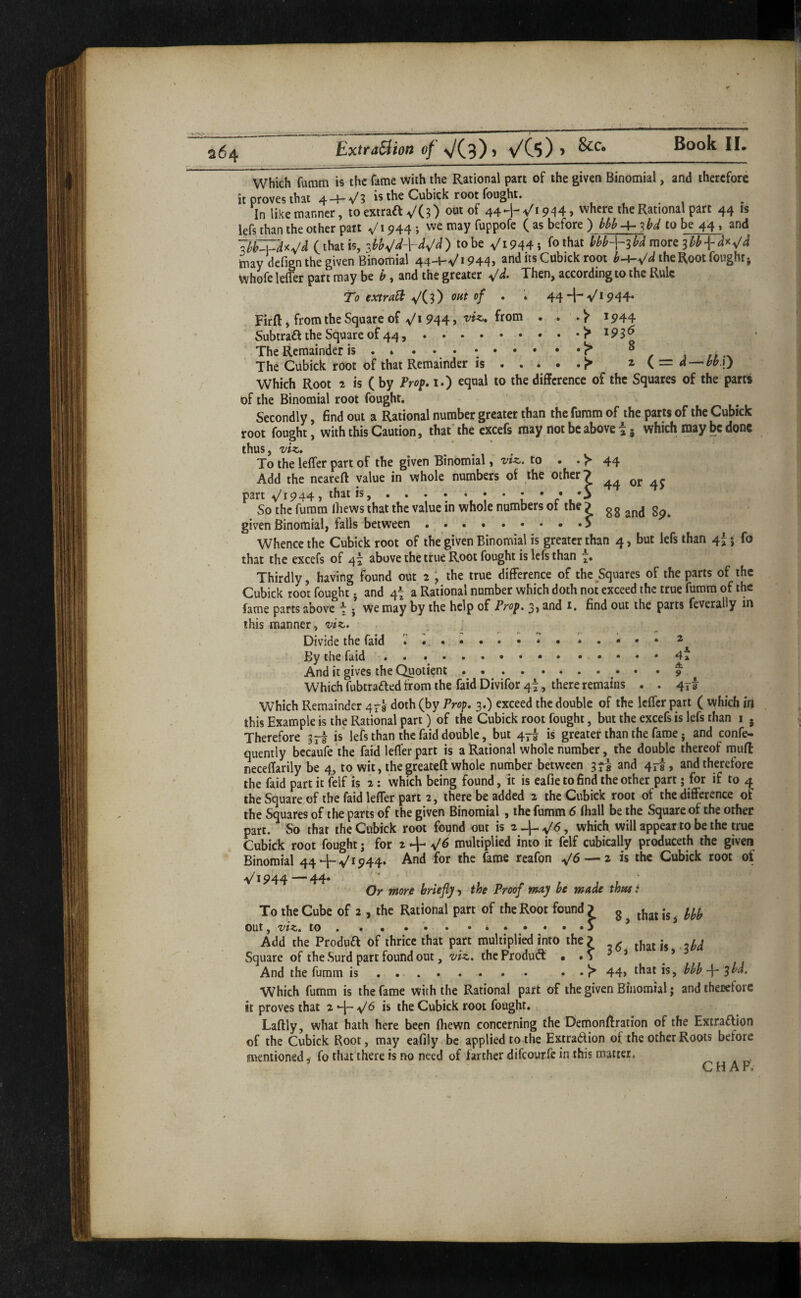 264 Extraction of √(3), √(5), &c. Book II.
Which ſumm is the ſame with the Rational part of the given Binomial, and therefore
it proves that 4 + √3 is the Cubick root ſought.
In like manner, to extract √(3) out of 44 + √1944, where the Rational part 44 is
leſs than the other part √1944; we may ſuppoſe (as before) bbb + 3bd to be 44, and
3bb+d×√d (that is, 3bb√d+d√d) to be √1944; ſo that bbb+3bd more 3bb+d×√d
may deſign the given Binomial 44+√1944, and its Cubick root b+√d the Root ſought;
whoſe leſſer part may be b, and the greater √d. Then, according to the Rule
To extract √(3) out of . . 44 + √1944.
Firſt, from the Square of √1944, viz. from . . . > 1944
Subtract the Square of 44, . . . . . . . . . > 1936
The Remainder is . . . . . . . . . . . > 8
The Cubick root of that Remainder is . . . . . > 2 (= d — bb.)
Which Root 2 is (by Prop. 1.) equal to the difference of the Squares of the parts
of the Binomial root ſought.
Secondly, find out a Rational number greater than the ſumm of the parts of the Cubick
root ſought, with this Caution, that the exceſs may not be above ½; which may be done
thus, viz.
To the leſſer part of the given Binomial, viz. to . . > 44
Add the neareſt value in whole numbers of the other } 44 or 45
part √1944, that is, . . . . . . . . . . . }
So the ſumm ſhews that the value in whole numbers of the } 88 and 89.
given Binomial, falls between . . . . . . . . . }
Whence the Cubick root of the given Binomial is greater than 4, but leſs than 4½; ſo
that the exceſs of 4½ above the true Root ſought is leſs than ½.
Thirdly, having found out 2, the true difference of the Squares of the parts of the
Cubick root ſought; and 4½ a Rational number which doth not exceed the true ſumm of the
ſame parts above ½; we may by the help of Prop. 3, and 1. find out the parts ſeverally in
this manner, viz.
Divide the ſaid . . . . . . . . . . . . . . 2
By the ſaid . . . . . . . . . . . . . . . 4½
And it gives the Quotient . . . . . . . . . . . 4/9
Which ſubtracted from the ſaid Diviſor 4½, there remains . . 4 1/18
Which Remainder 4 1/18 doth (by Prop. 3.) exceed the double of the leſſer part (which in
this Example is the Rational part) of the Cubick root ſought, but the exceſs is leſs than 1;
Therefore 3 1/18 is leſs than the ſaid double, but 4 1/18 is greater than the ſame; and conſe-
quently becauſe the ſaid leſſer part is a Rational whole number, the double thereof muſt
neceſſarily be 4, to wit, the greateſt whole number between 3 1/18 and 4 1/18, and therefore
the ſaid part it ſelf is 2: which being found, it is eaſie to find the other part; for if to 4
the Square of the ſaid leſſer part 2, there be added 2 the Cubick root of the difference of
the Squares of the parts of the given Binomial, the ſumm 6 ſhall be the Square of the other
part. So that the Cubick root found out is 2 + √6, which will appear to be the true
Cubick root ſought; for 2 + √6 multiplied into it ſelf cubically produceth the given
Binomial 44 + √1944. And for the ſame reaſon √6 — 2 is the Cubick root of
√1944 — 44.
Or more briefly, the Proof may be made thus:
To the Cube of 2, the Rational part of the Root found } 8, that is, bbb
out, viz. to . . . . . . . . . . . . . }
Add the Product of thrice that part multiplied into the } 36, that is, 3bd
Square of the Surd part found out, viz. the Product . . }
And the ſumm is . . . . . . . . . > 44, that is, bbb + 3bd.
Which ſumm is the ſame with the Rational part of the given Binomial; and therefore
it proves that 2 + √6 is the Cubick root ſought.
Laſtly, what hath here been ſhewn concerning the Demonſtration of the Extraction
of the Cubick Root, may eaſily be applied to the Extraction of the other Roots before
mentioned, ſo that there is no need of farther diſcourſe in this matter.
CHAP.